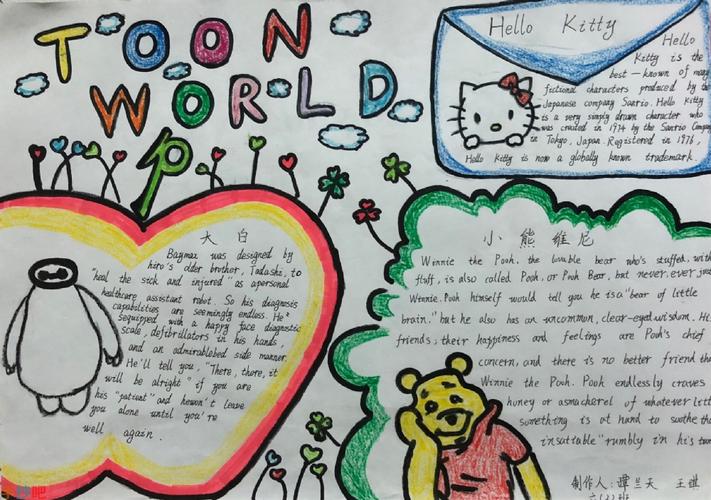 TOON
WORLD
Hello Kitty
Hello
Kitty is the
best-known of many
fictional characters produced by the
Japanese company Sanrio. Hello Kitty
is a very simply drawn character who
was created in 1974 by the Sanrio Company
in Tokyo, Japan. Registered in 1976,
Hello Kitty is now a globally known trademark.
大白
Baymax was designed by
hiro's older brother, Tadashi, to
"heal the sick and injured" as apersonal
healthcare assistant robot. So his diagnosis
capabilities are seemingly endless. He's
equipped with a happy face diagnostic
scale, defibrillators in his hands,
and an admirablebed side manner.
He'll tell you, "There, there, it
will be alright" if you are
his "patient" and howon't leave
you alone until you're
well again.
小熊维尼
Winnie the Pooh, the lovable bear who's stuffed, with
fluff, is also called Pooh, or Pooh Bear, but never, ever just
Winnie. Pooh himself would tell you he is a "bear of little
brain." but he also has an uncommon, clear-eyed wisdom. His
friends, their happiness and feelings are Pooh's chief
concern, and there is no better friend than
Winnie the Pooh. Pooh endlessly craves
huney or asmackerel of whatever little
something is at hand to soothe the
insatiable" rumbly in his tum
制作人:谭兰天 王雄